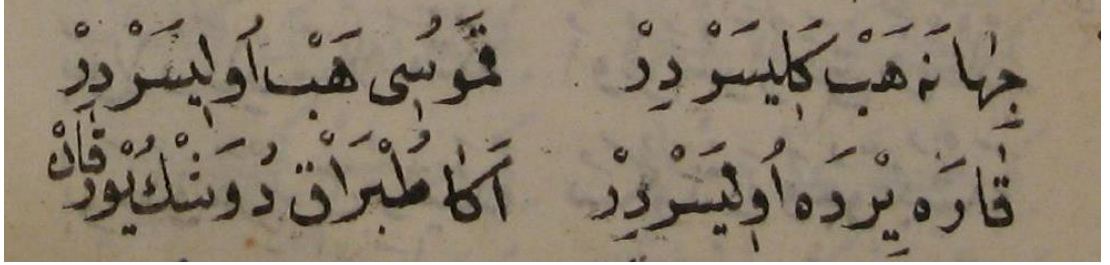 جِهَانَه هَبْ كَلِيسَرْ دِرْ قَمُوسِى هَبْ اُولِيسَرْ دِرْ
قَارَه يِرْدَه اُولِيسَرْدِرْ اَكَا طُبْرَاقْ دُوشَكْ يُورْقَانْ